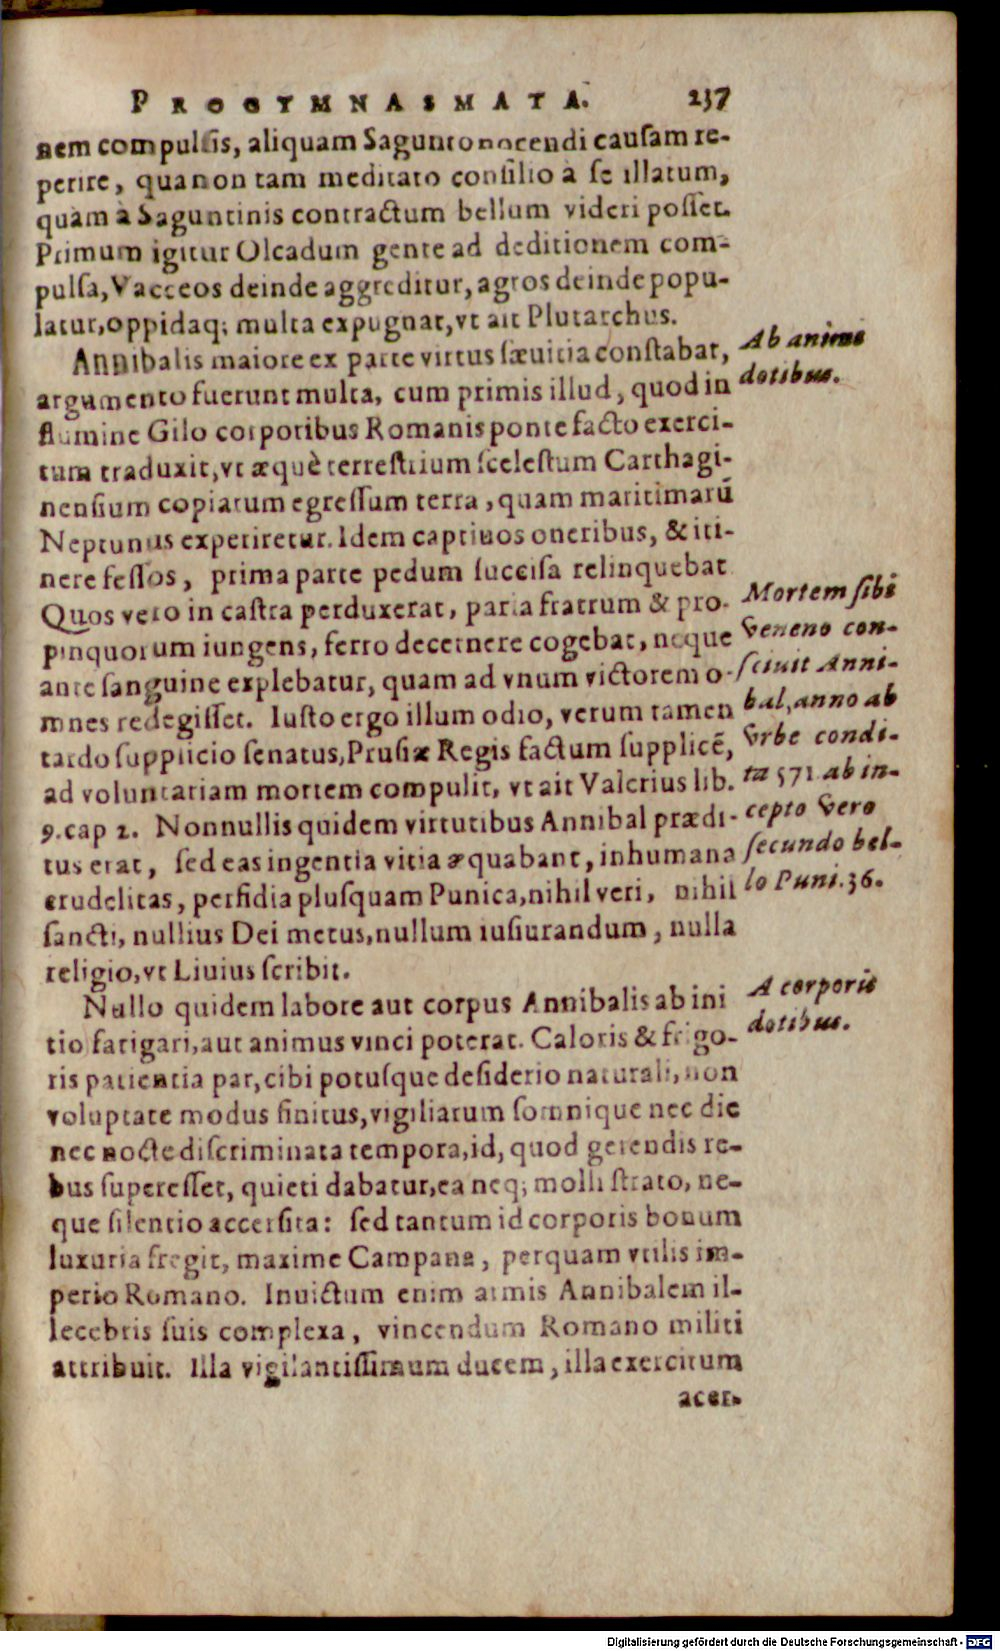 PROGYMNASMATA. 237
nem compulsis, aliquam Sagunto nocendi causam re-
perire, qua non tam meditato consilio à se illatum,
quàm à Saguntinis contractum bellum videri posset.
Primum igitur Olcadum gente ad deditionem com-
pulsa, Vacceos deinde aggreditur, agros deinde popu-
latur, oppidaq; multa expugnat, vt ait Plutarchus.
Annibalis maiore ex parte virtus sæuitia constabat,
argumento fuerunt multa, cum primis illud, quod in
flumine Gilo corporibus Romanis ponte facto exerci-
tum traduxit, vt æquè terrestrium scelestum Carthagi-
nensium copiarum egressum terra, quam maritimarū
Neptunus experiretur. Idem captiuos oneribus, & iti-
nere fessos, prima parte pedum succisa relinquebat
Quos vero in castra perduxerat, paria fratrum & pro-
pinquorum iungens, ferro decernere cogebat, neque
ante sanguine explebatur, quam ad vnum victorem o-
mnes redegisset. Iusto ergo illum odio, verum tamen
tardo supplicio senatus, Prusiæ Regis factum supplicē,
ad voluntariam mortem compulit, vt ait Valerius lib.
9. cap 2. Nonnullis quidem virtutibus Annibal prædi-
tus erat, sed eas ingentia vitia æquabant, inhumana
crudelitas, perfidia plusquam Punica, nihil veri, nihil
sancti, nullius Dei metus, nullum iusiurandum, nulla
religio, vt Liuius scribit.
Nullo quidem labore aut corpus Annibalis ab ini
tio fatigari, aut animus vinci poterat. Caloris & frigo-
ris patientia par, cibi potusque desiderio naturali, non
voluptate modus finitus, vigiliarum somnique nec die
nec nocte discriminata tempora, id, quod gerendis re-
bus superesset, quieti dabatur, ea neq; molli strato, ne-
que silentio accersita: sed tantum id corporis bonum
luxuria fregit, maxime Campana, perquam vtilis im-
perio Romano. Inuictum enim armis Annibalem il-
lecebris suis complexa, vincendum Romano militi
attribuit. Illa vigilantissimum ducem, illa exercitum
acer-
Ab animi
dotibus.
Mortem sibi
veneno con-
sciuit Anni-
bal, anno ab
vrbe condi-
ta 571 ab in-
cepto vero
secundo bel-
lo Puni. 36.
A corporis
dotibus.
Digitalisierung gefördert durch die Deutsche Forschungsgemeinschaft - DFG